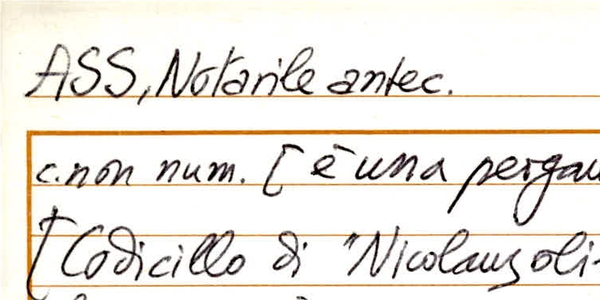 ASS, Notarile antec.
c. non num. [ è una pergam
[Codicillo di "Nicolaus oli-